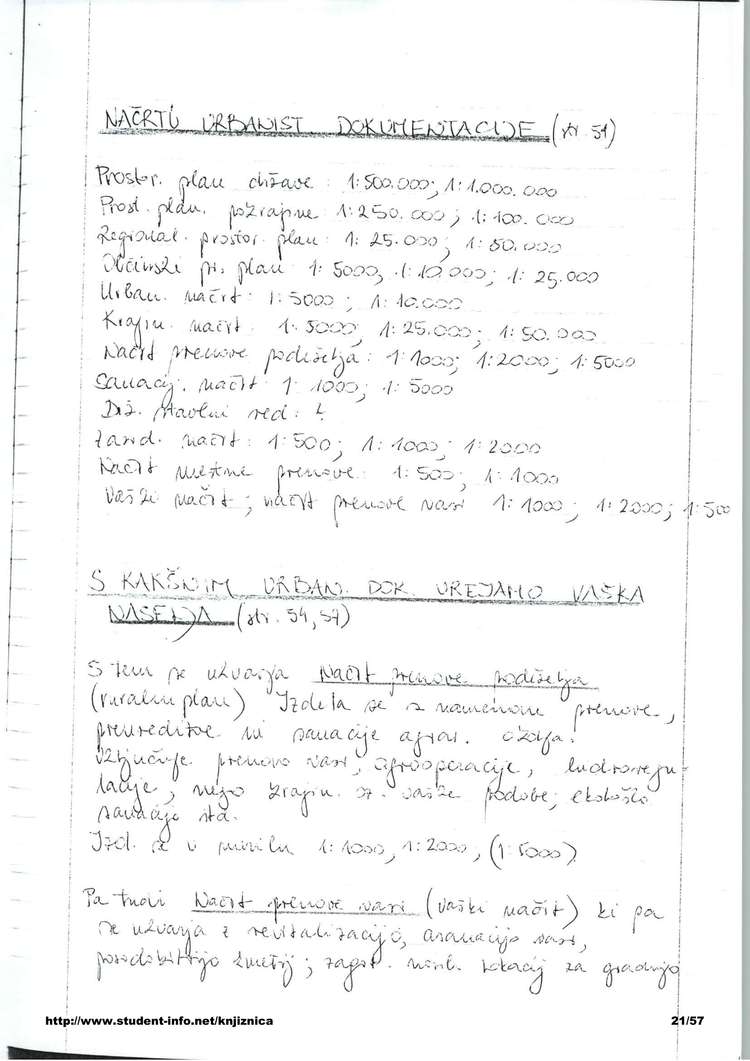 NAČRTI URBANIST. DOKUMENTACIJE (str. 54)
Prostor. plan države : 1:500.000; 1:1.000.000
Prost. plan. pokrajine 1:250.000; 1:100.000
Regional. prostor. plan: 1:25.000; 1:50.000
Občinski pr. plan: 1:5000; 1:10.000; 1:25.000
Urban. načrt: 1:5000; 1:10.000
Krajin. načrt: 1:5000; 1:25.000; 1:50.000
Načrt prenove podeželja: 1:1000; 1:2000; 1:5000
Sanacij. načrt 1:1000; 1:5000
Drž. stavbni red:
Zazid. načrt: 1:500; 1:1000; 1:2000
Načrt mestne prenove: 1:500; 1:1000
Vaški načrt; načrt prenove vasi 1:1000; 1:2000; 1:500
S KAKŠNIM URBAN. DOK. UREJAMO VAŠKA
NASELJA (str. 54, 57)
S tem se ukvarja Načrt prenove podeželja
(ruralni plan) Izdela se z namenom prenove,
preureditve in sanacije agrar. okolja.
Vključuje prenovo vasi, agrooperacije, hidroregu-
lacije, nego krajin. oz. vaške podobe, ekološko
sanacijo itd.
Izd. se v merilu 1:1000, 1:2000, (1:5000)
Pa tudi Načrt prenove vasi (vaški načrt) ki pa
se ukvarja z revitalizacijo, asanacijo vasi,
posodobitvijo kmetij; zagot. lokacij za gradnjo
http://www.student-info.net/knjiznica
21/57